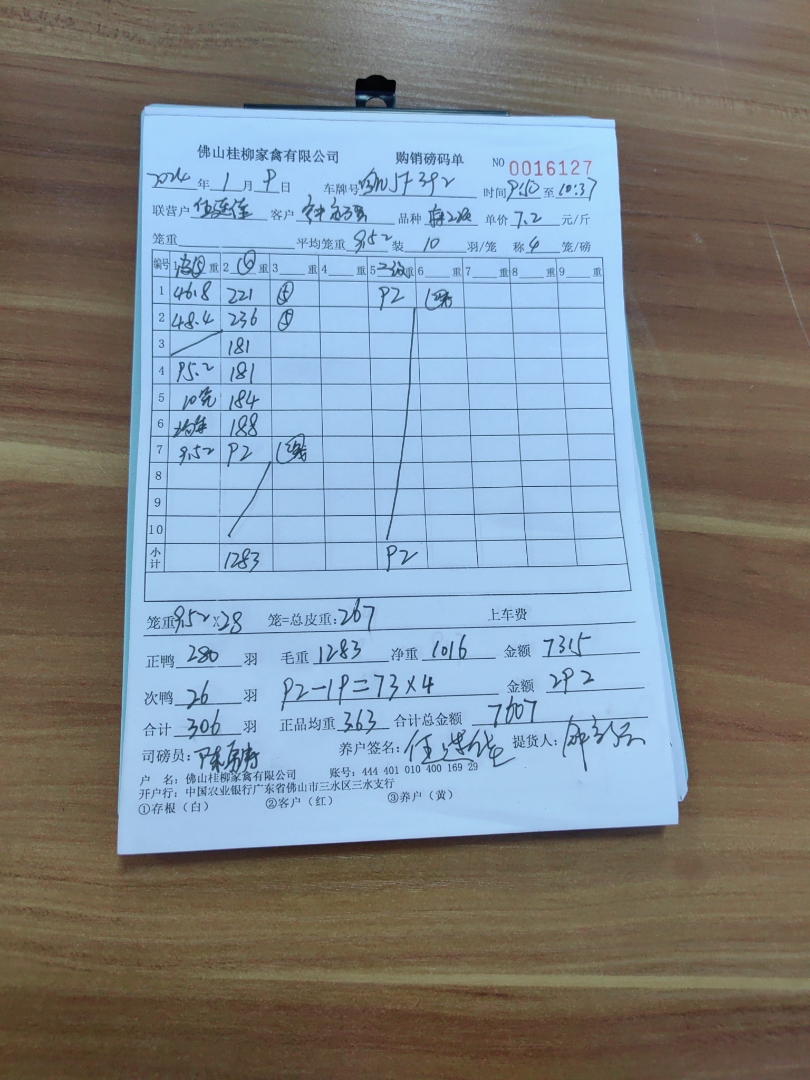 佛山桂柳家禽有限公司 购销磅码单 NO 0016127
2024年 1月 9日 车牌号 J7392 时间 9:50 至 10:37
联营户 客户 品种 单价 7.2 元/斤
笼重 平均笼重 9.52 装 10 羽/笼 称 4 笼/磅
编号 1 空⑤ 重 2 ④ 重 3 重 4 重 5 二级 重 6 重 7 重 8 重 9 重
1 46.8 221 ⑤ 92
2 48.4 236 ⑤
3 181
4 95.2 181
5 10笼 184
6 均重 188
7 9.52 92
8
9
10
小计 1283 92
笼重 9.52 x28 笼=总皮重: 267 上车费
正鸭 280 羽 毛重 1283 净重 1016 金额 7315
次鸭 26 羽 92-19=73×4 金额 292
合计 306 羽 正品均重 3.63 合计总金额 7607
司磅员: 养户签名: 提货人:
户 名: 佛山桂柳家禽有限公司 账号: 444 401 010 400 169 29
开户行: 中国农业银行广东省佛山市三水区三水支行
①存根（白） ②客户（红） ③养户（黄）